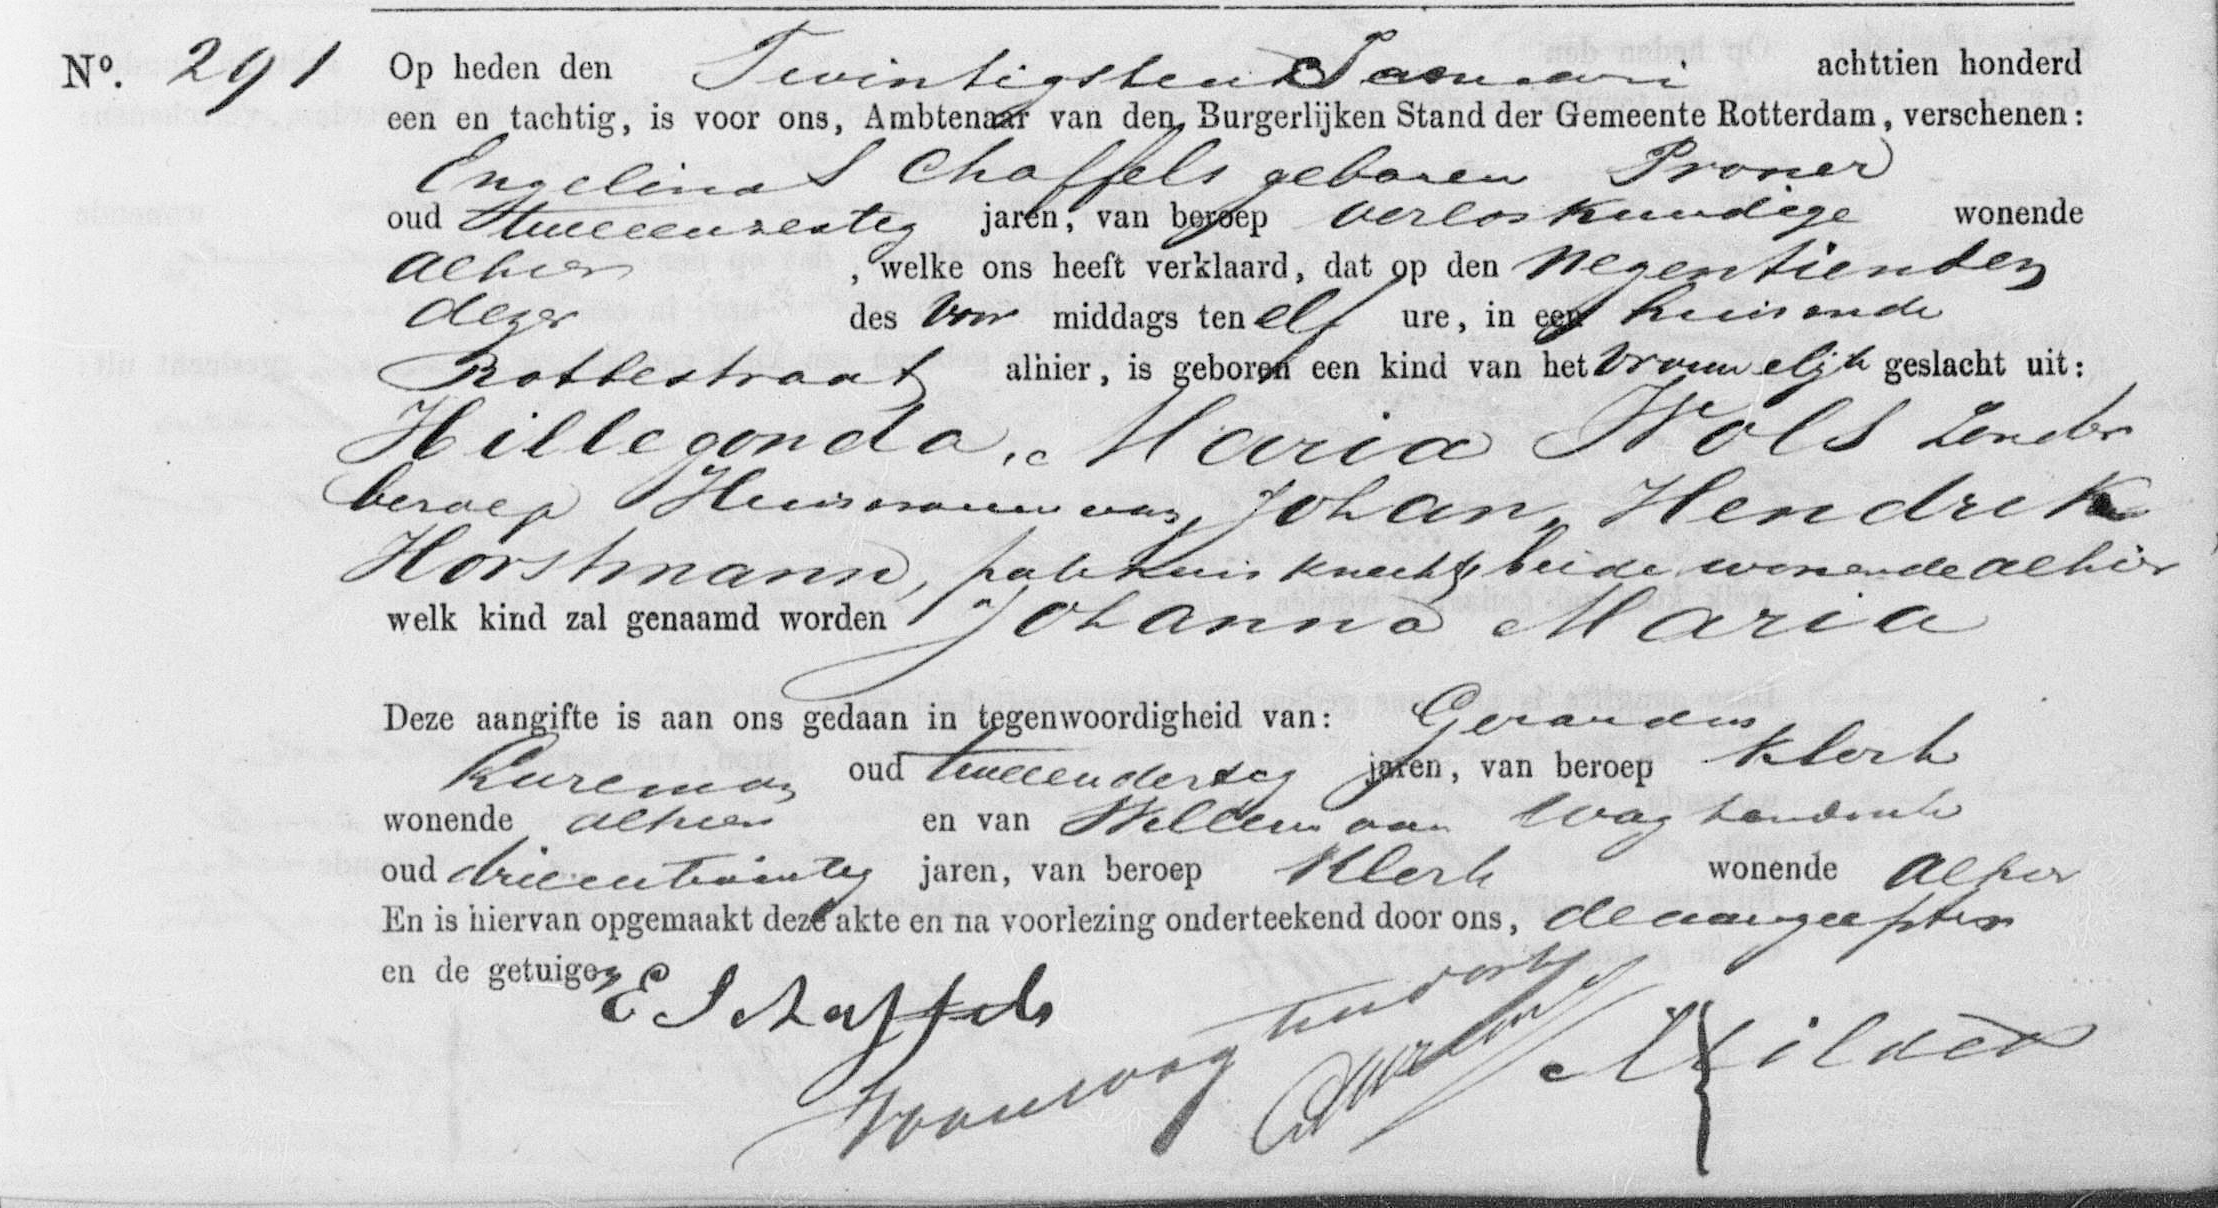 No. 291 Op heden den Twintigsten Januari achttien honderd
een en tachtig, is voor ons, Ambtenaar van den Burgerlijken Stand der Gemeente Rotterdam, verschenen:
Engelina Schaffels geboren Proner
oud tweeenzestig jaren, van beroep verloskundige wonende
alhier, welke ons heeft verklaard, dat op den negentienden
dezer des voor middags ten elf ure, in een huis ande
Rottestraat alhier, is geboren een kind van het vrouwelijk geslacht uit:
Hillegonda Maria Wols zonder
beroep Huisvrouw van Johan Hendrik
Horstmann, pakhuisknecht, beide wonende alhier
welk kind zal genaamd worden Johanna Maria
Deze aangifte is aan ons gedaan in tegenwoordigheid van: Gerardus
Kureman oud tweeendertig jaren, van beroep klerk
wonende alhier en van Willem van Wag
oud drieentwintig jaren, van beroep klerk wonende alhier
En is hiervan opgemaakt deze akte en na voorlezing onderteekend door ons, de aangeefster
en de getuigen
E Schaffels